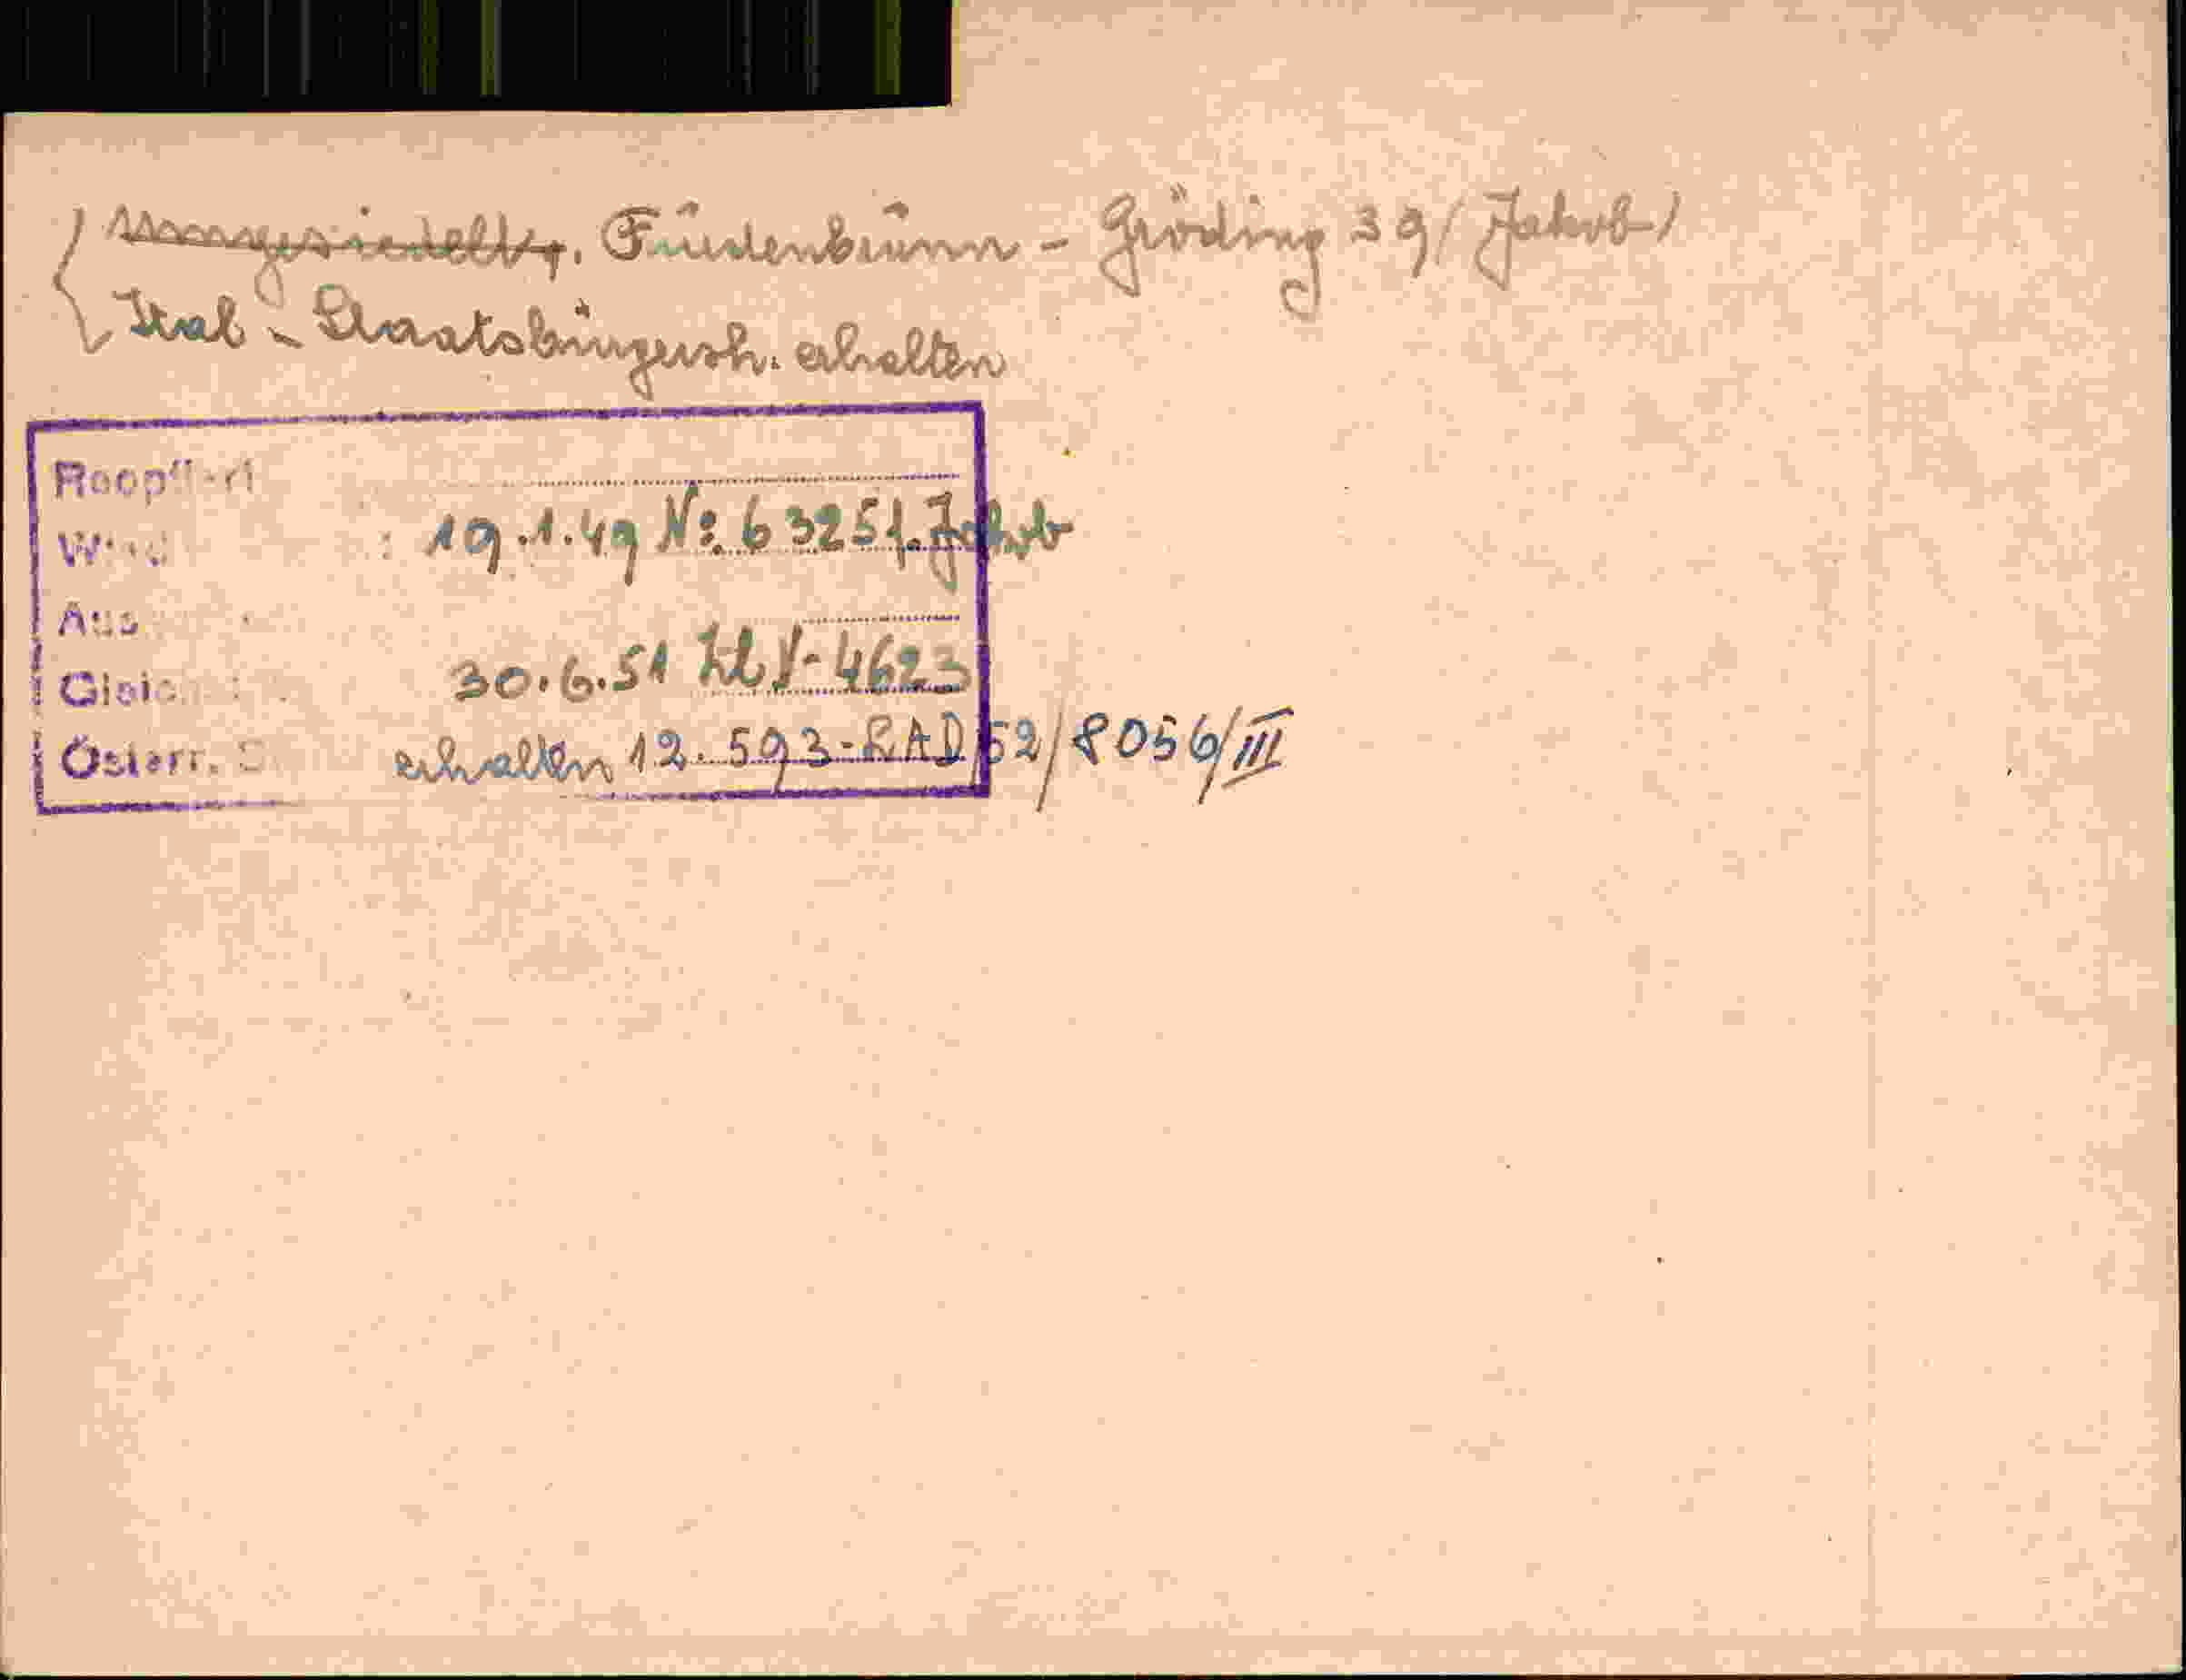 umgesiedelt n. Fürstenbrunn - Grödig 39 (Jakob)
Ital. Staatsbürgersch. erhalten
Reopt
19.1.49 No. 63251. Jakob
Aus
30.6.51 Zl V-4623
Österr. erhalten 12.593-LAD/52/8056/III